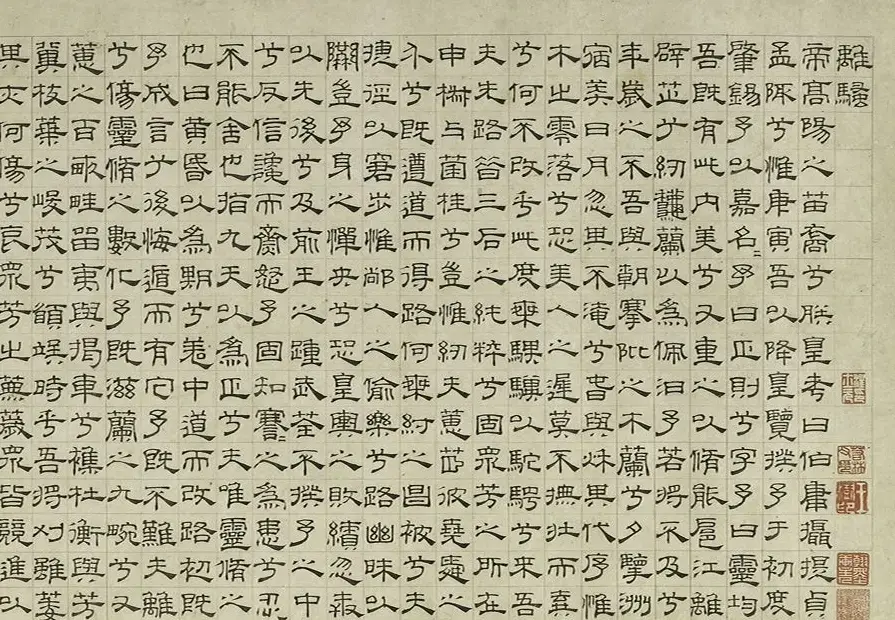 離騷
帝高陽之苗裔兮朕皇考曰伯庸攝提貞
孟陬兮惟庚寅吾以降皇覽揆予于初度
肇錫予以嘉名〻予曰正則兮字予曰靈均
吾既有此內美兮又重之以脩能扈江離
辟芷兮紉龝蘭以為佩汩予若將不及兮
年歲之不吾與朝搴阰之木蘭兮夕擥洲
宿莽日月忽其不淹兮春與秌其代序惟
木之零落兮恐美人之遲莫不撫壯而棄
兮何不改乎此度乘騏驥以駝騁兮來吾
夫先路昔三后之純粹兮固眾芳之所在
申椒与菌桂兮豈惟紉夫蕙茝彼堯舜之
介兮既遵道而得路何桀紂之昌被兮夫
捷徑以窘步惟黨人之偷樂兮路幽昧以
隘豈予身之憚央兮恐皇輿之敗績忽奔
以先後兮及前王之踵武荃不揆予之中
兮反信讒而齌怒予固知謇〻之為患兮忍
不能舍也指九天以為正兮夫唯靈脩之
也曰黃昏以為期兮羌中道而改路初既
予成言兮後悔遁而有它予既不難夫離
兮傷靈脩之數化予既滋蘭之九畹兮又
蕙之百畝畦留夷與揭車兮雜杜衡與芳
冀枝葉之峻茂兮願竢時乎吾將刈雖萎
其亦何傷兮哀眾芳之蕪薉眾皆競進以